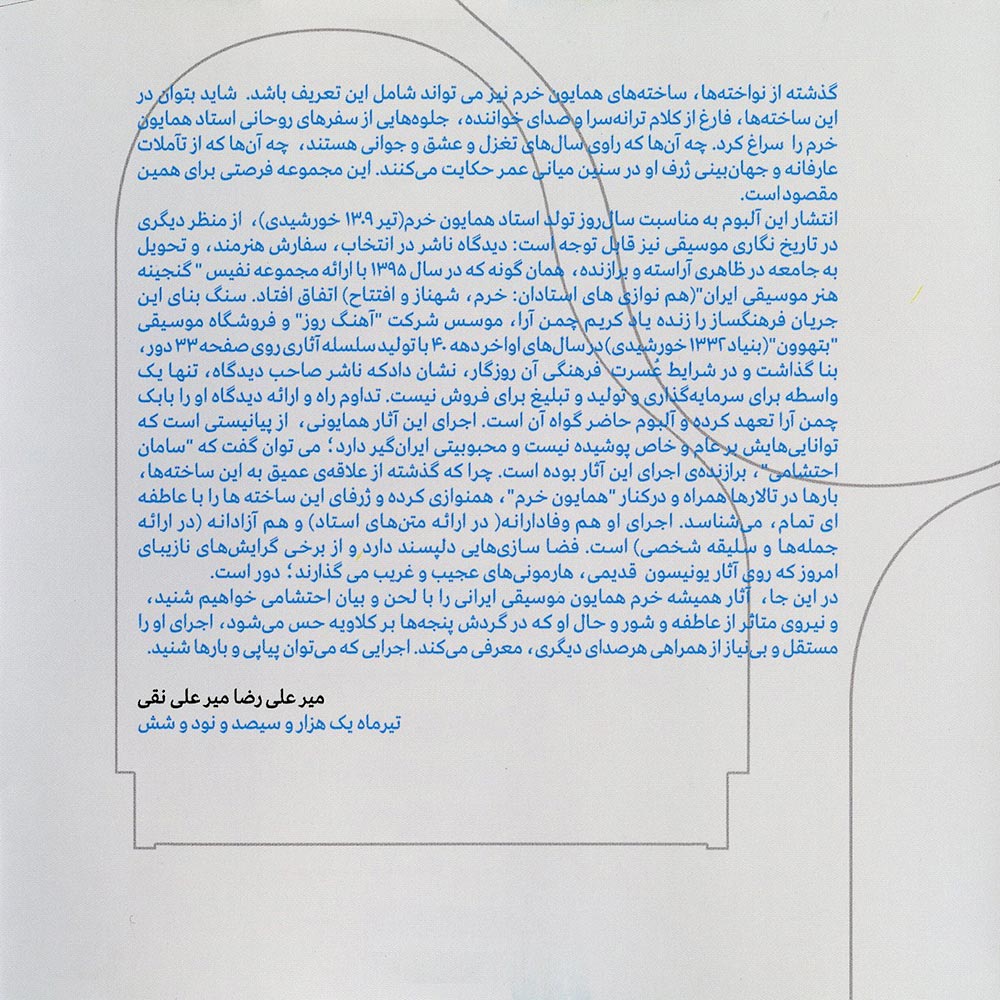 گذشته از نواخته‌ها، ساخته‌های همایون خرم نیز می تواند شامل این تعریف باشد. شاید بتوان در
این ساخته‌ها، فارغ از کلام ترانه‌سرا و صدای خواننده، جلوه‌هایی از سفرهای روحانی استاد همایون
خرم را سراغ کرد. چه آن‌ها که راوی سال‌های تغزل و عشق و جوانی هستند، چه آن‌ها که از تآملات
عارفانه و جهان‌بینی ژرف او در سنین میانی عمر حکایت می‌کنند. این مجموعه فرصتی برای همین
مقصود است.
انتشار این آلبوم به مناسبت سال‌روز تولد استاد همایون خرم(تیر ۱۳۰۹ خورشیدی)، از منظر دیگری
در تاریخ نگاری موسیقی نیز قابل توجه است: دیدگاه ناشر در انتخاب، سفارش هنرمند، و تحویل
به جامعه در ظاهری آراسته و برازنده، همان گونه که در سال ۱۳۹۵ با ارائه مجموعه نفیس " گنجینه
هنر موسیقی ایران"(هم نوازی های استادان: خرم، شهناز و افتتاح) اتفاق افتاد. سنگ بنای این
جریان فرهنگساز را زنده یاد کریم چمن آرا، موسس شرکت "آهنگ روز" و فروشگاه موسیقی
"بتهوون"(بنیاد ۱۳۳۲ خورشیدی) در سال‌های اواخر دهه ۴۰ با تولید سلسله آثاری روی صفحه ۳۳ دور،
بنا گذاشت و در شرایط عُسرت فرهنگی آن روزگار، نشان دادکه ناشر صاحب دیدگاه، تنها یک
واسطه برای سرمایه‌گذاری و تولید و تبلیغ برای فروش نیست. تداوم راه و ارائه دیدگاه او را بابک
چمن آرا تعهد کرده و آلبوم حاضر گواه آن است. اجرای این آثار همایونی، از پیانیستی است که
توانایی‌هایش بر عام و خاص پوشیده نیست و محبوبیتی ایران‌گیر دارد؛ می توان گفت که "سامان
احتشامی"، برازنده‌ی اجرای این آثار بوده است. چرا که گذشته از علاقه‌ی عمیق به این ساخته‌ها،
بارها در تالارها همراه و درکنار "همایون خرم"، همنوازی کرده و ژرفای این ساخته ها را با عاطفه
ای تمام، می‌شناسد. اجرای او هم وفادارانه( در ارائه متن‌های استاد) و هم آزادانه (در ارائه
جمله‌ها و سلیقه شخصی) است. فضا سازی‌هایی دلپسند دارد و از برخی گرایش‌های نازیبای
امروز که روی آثار یونیسون قدیمی، هارمونی‌های عجیب و غریب می گذارند؛ دور است.
در این جا، آثار همیشه خرم همایون موسیقی ایرانی را با لحن و بیان احتشامی خواهیم شنید،
و نیروی متاثر از عاطفه و شور و حال او که در گردش پنجه‌ها بر کلاویه حس می‌شود، اجرای او را
مستقل و بی‌نیاز از همراهی هرصدای دیگری، معرفی می‌کند. اجرایی که می‌توان پیاپی و بارها شنید.
میر علی رضا میر علی نقی
تیرماه یک هزار و سیصد و نود و شش